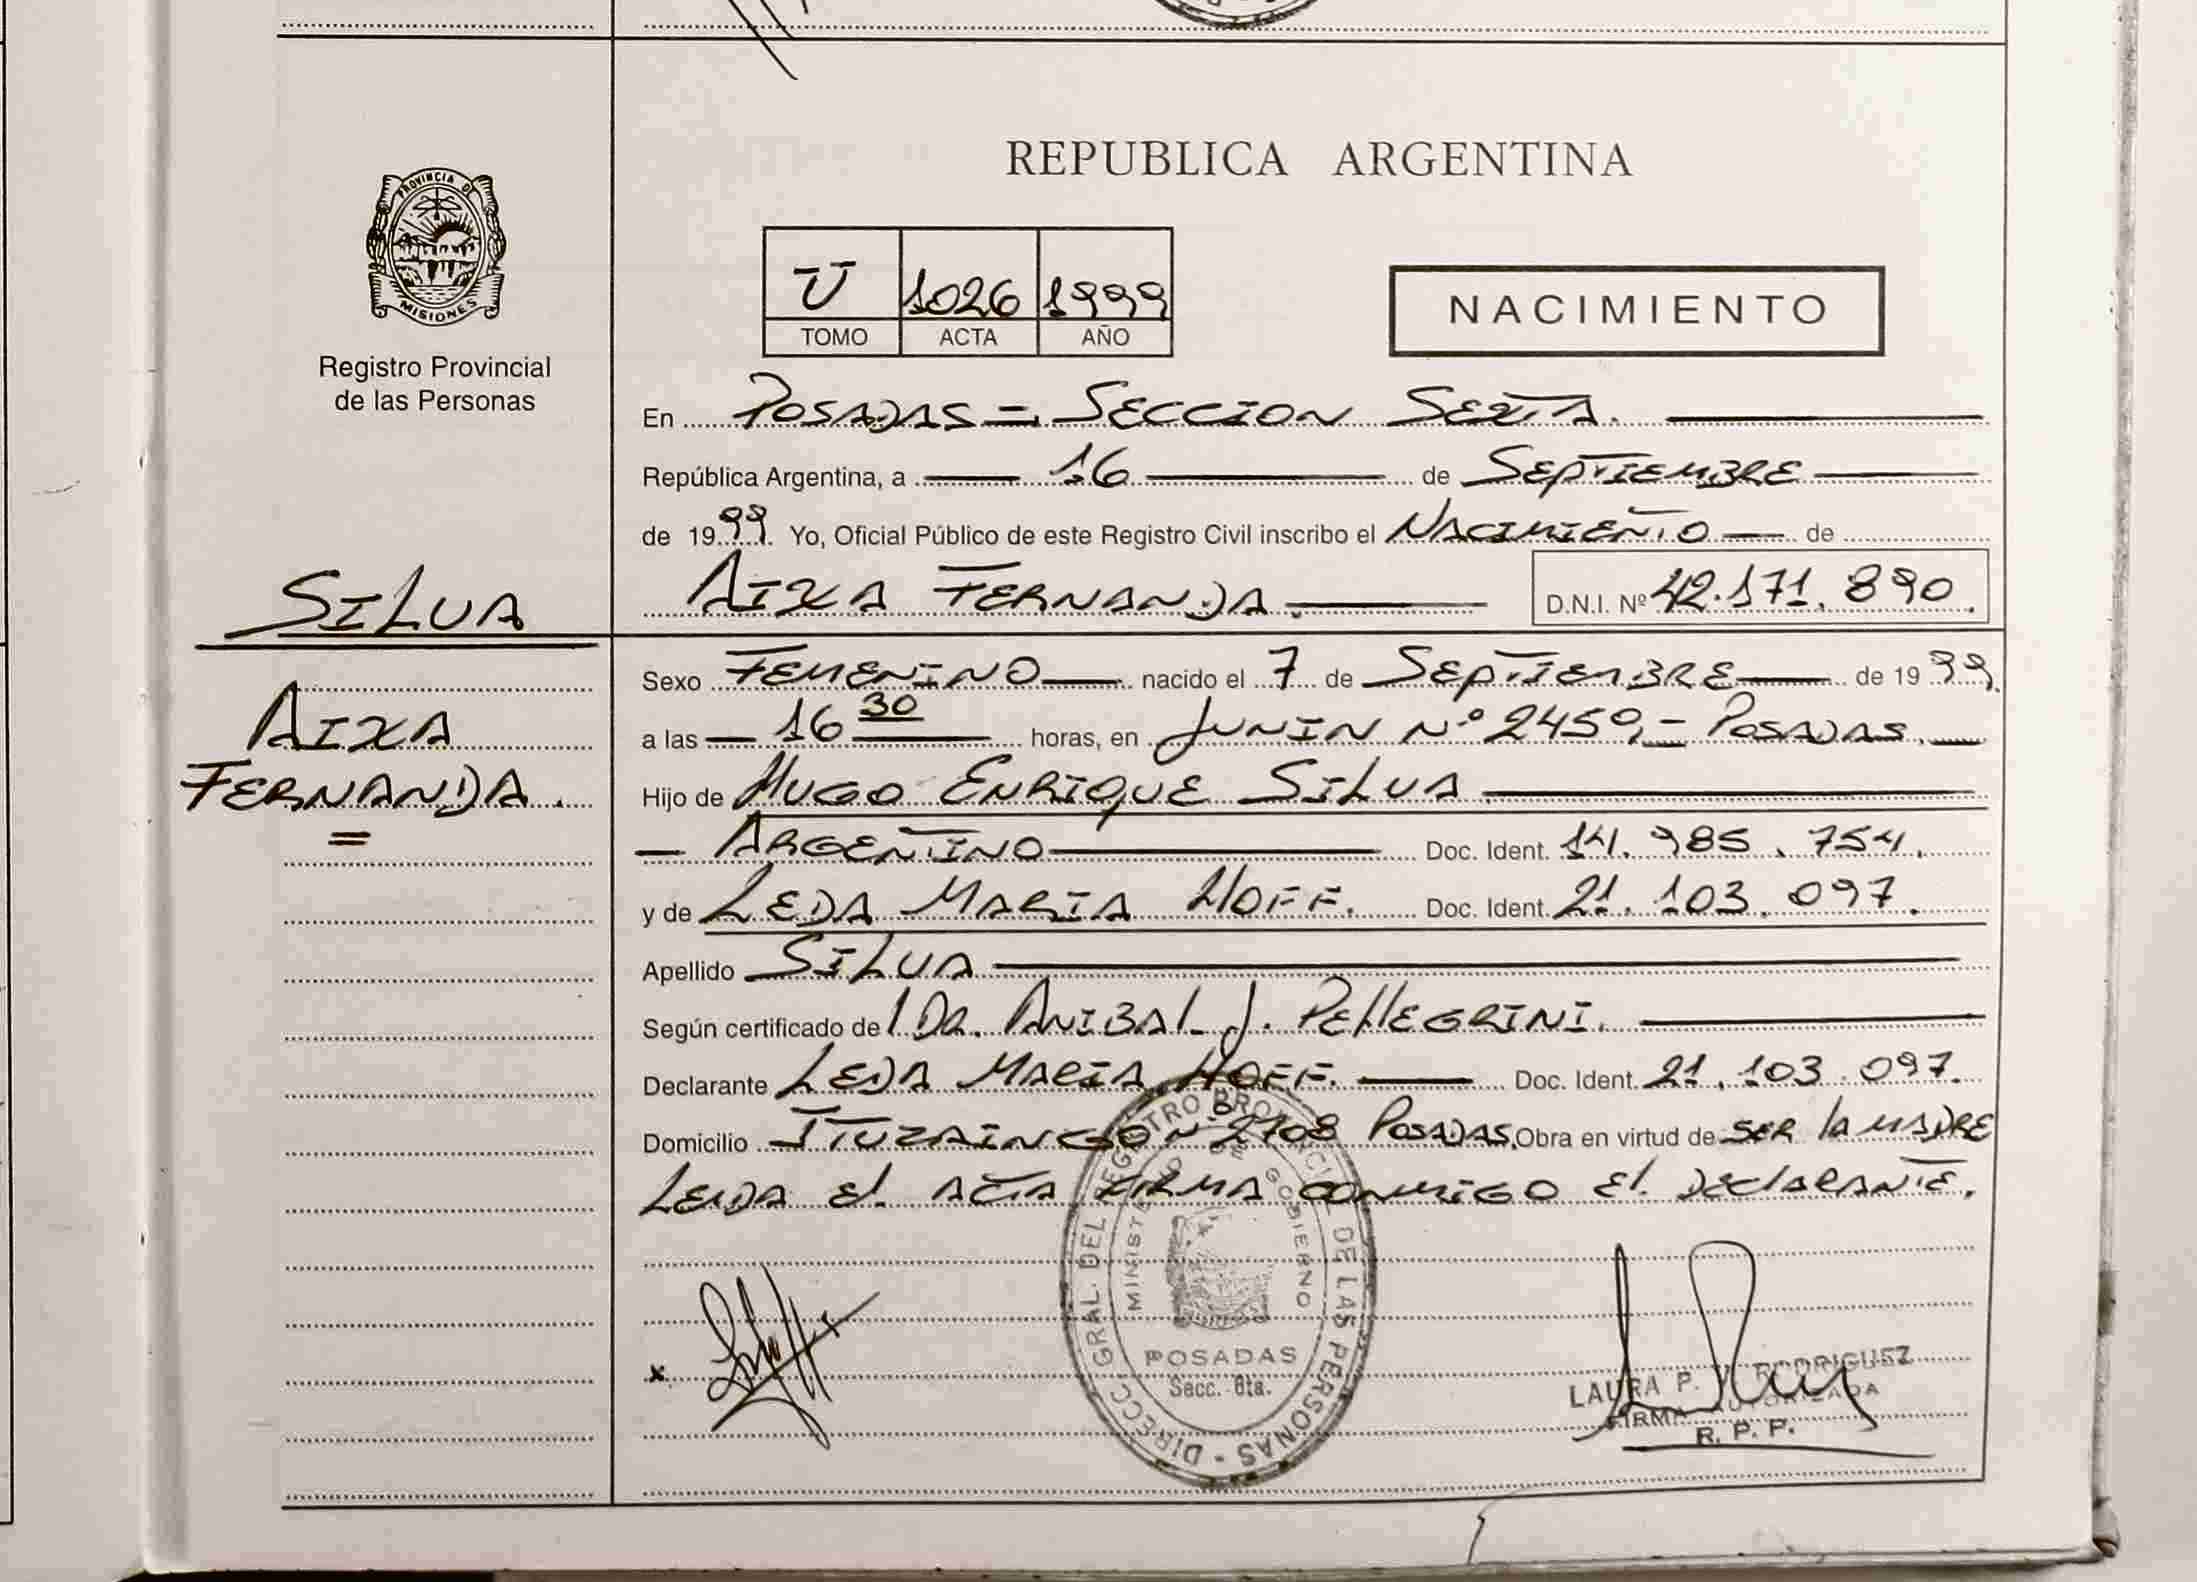 PROVINCIA DE
MISIONES
Registro Provincial
de las Personas
REPUBLICA ARGENTINA
U 1026 1999
TOMO ACTA AÑO
NACIMIENTO
En POSADAS = SECCION SEXTA.
República Argentina, a 16 de SEPTIEMBRE
de 1999 Yo, Oficial Público de este Registro Civil inscribo el NACIMIENTO de
AIXA FERNANDA. D.N.I. Nº 42.171.890.
SILVA
AIXA
FERNANDA.
Sexo FEMENINO nacido el 7 de SEPTIEMBRE de 1999.
a las 16 30 horas, en JUNIN Nº 2459,- POSADAS.
Hijo de HUGO ENRIQUE SILVA
ARGENTINO Doc. Ident. 14.985.754.
y de LEDA MARIA HOFF. Doc. Ident. 21.103.097.
Apellido SILVA
Según certificado de DR. ANIBAL J. PELLEGRINI.
Declarante LEDA MARIA HOFF. Doc. Ident. 21.103.097.
Domicilio ITUZAINGO Nº 2908 POSADAS. Obra en virtud de SER la MADRE
LEIDA El ACTA FIRMA CONMIGO El DEClARANTE.
DIRECC. GRAL. DEL REGISTRO PROVINCIAL DE LAS PERSONAS -
MINISTERIO DE GOBIERNO
POSADAS
Secc. 6ta.
x
LAURA P. RODRIGUEZ
FIRMA AUTORIZADA
R. P. P.